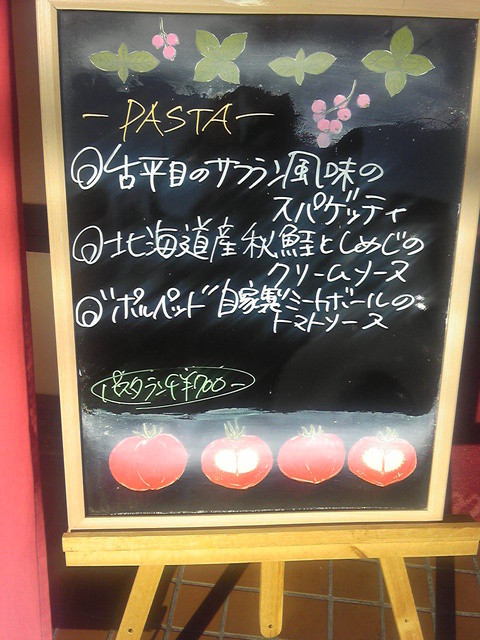 -PASTA-
◎舌平目のサフラン風味の
スパゲッティ
◎北海道産秋鮭としめじの
クリームソース
◎"ポルペッド"自家製ミートボールの
トマトソース
パスタランチ¥700-